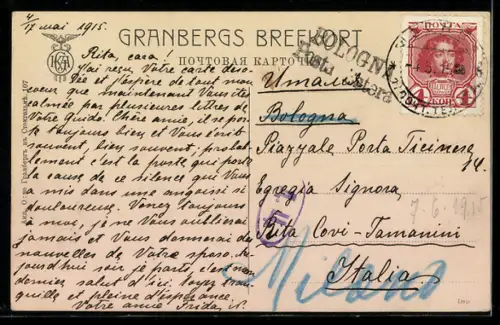 4/IX мai 1915.
GRANBERGS BREFKORT
ПОЧТОВАЯ КАРТОЧКА
Rita, cara!
J'ai reçu Votre carte
et j'espère de tout mon
coeur que maintenant Vous êtes
calmée par plusieures lettres de
Votre Guido. Chère amie, il se porte
toujours bien et Vous écrit
souvent, bien souvent, probable-
ment c'est la poste qui porte
la cause de ce silence qui Vous
a mis dans une angoisse si
douloureuse. Venez toujours
à moi, je ne Vous oublierai
jamais et Vous donnerai des
nouvelles de Votre époux. Au-
jourd'hui soir je parts, c'est mon
dernier salut d'ici. Soyez tran-
quille et pleine d'espérance.
Votre amie Frida
BOLOGNA
Posta Estera
Италiя
Bologna
Piazzale Porta Ticinese
Egregia Signora,
Rita Covi-Tamanini
Italia
Milano
7.6.1915
ПОЧТА
4 КОП.
107